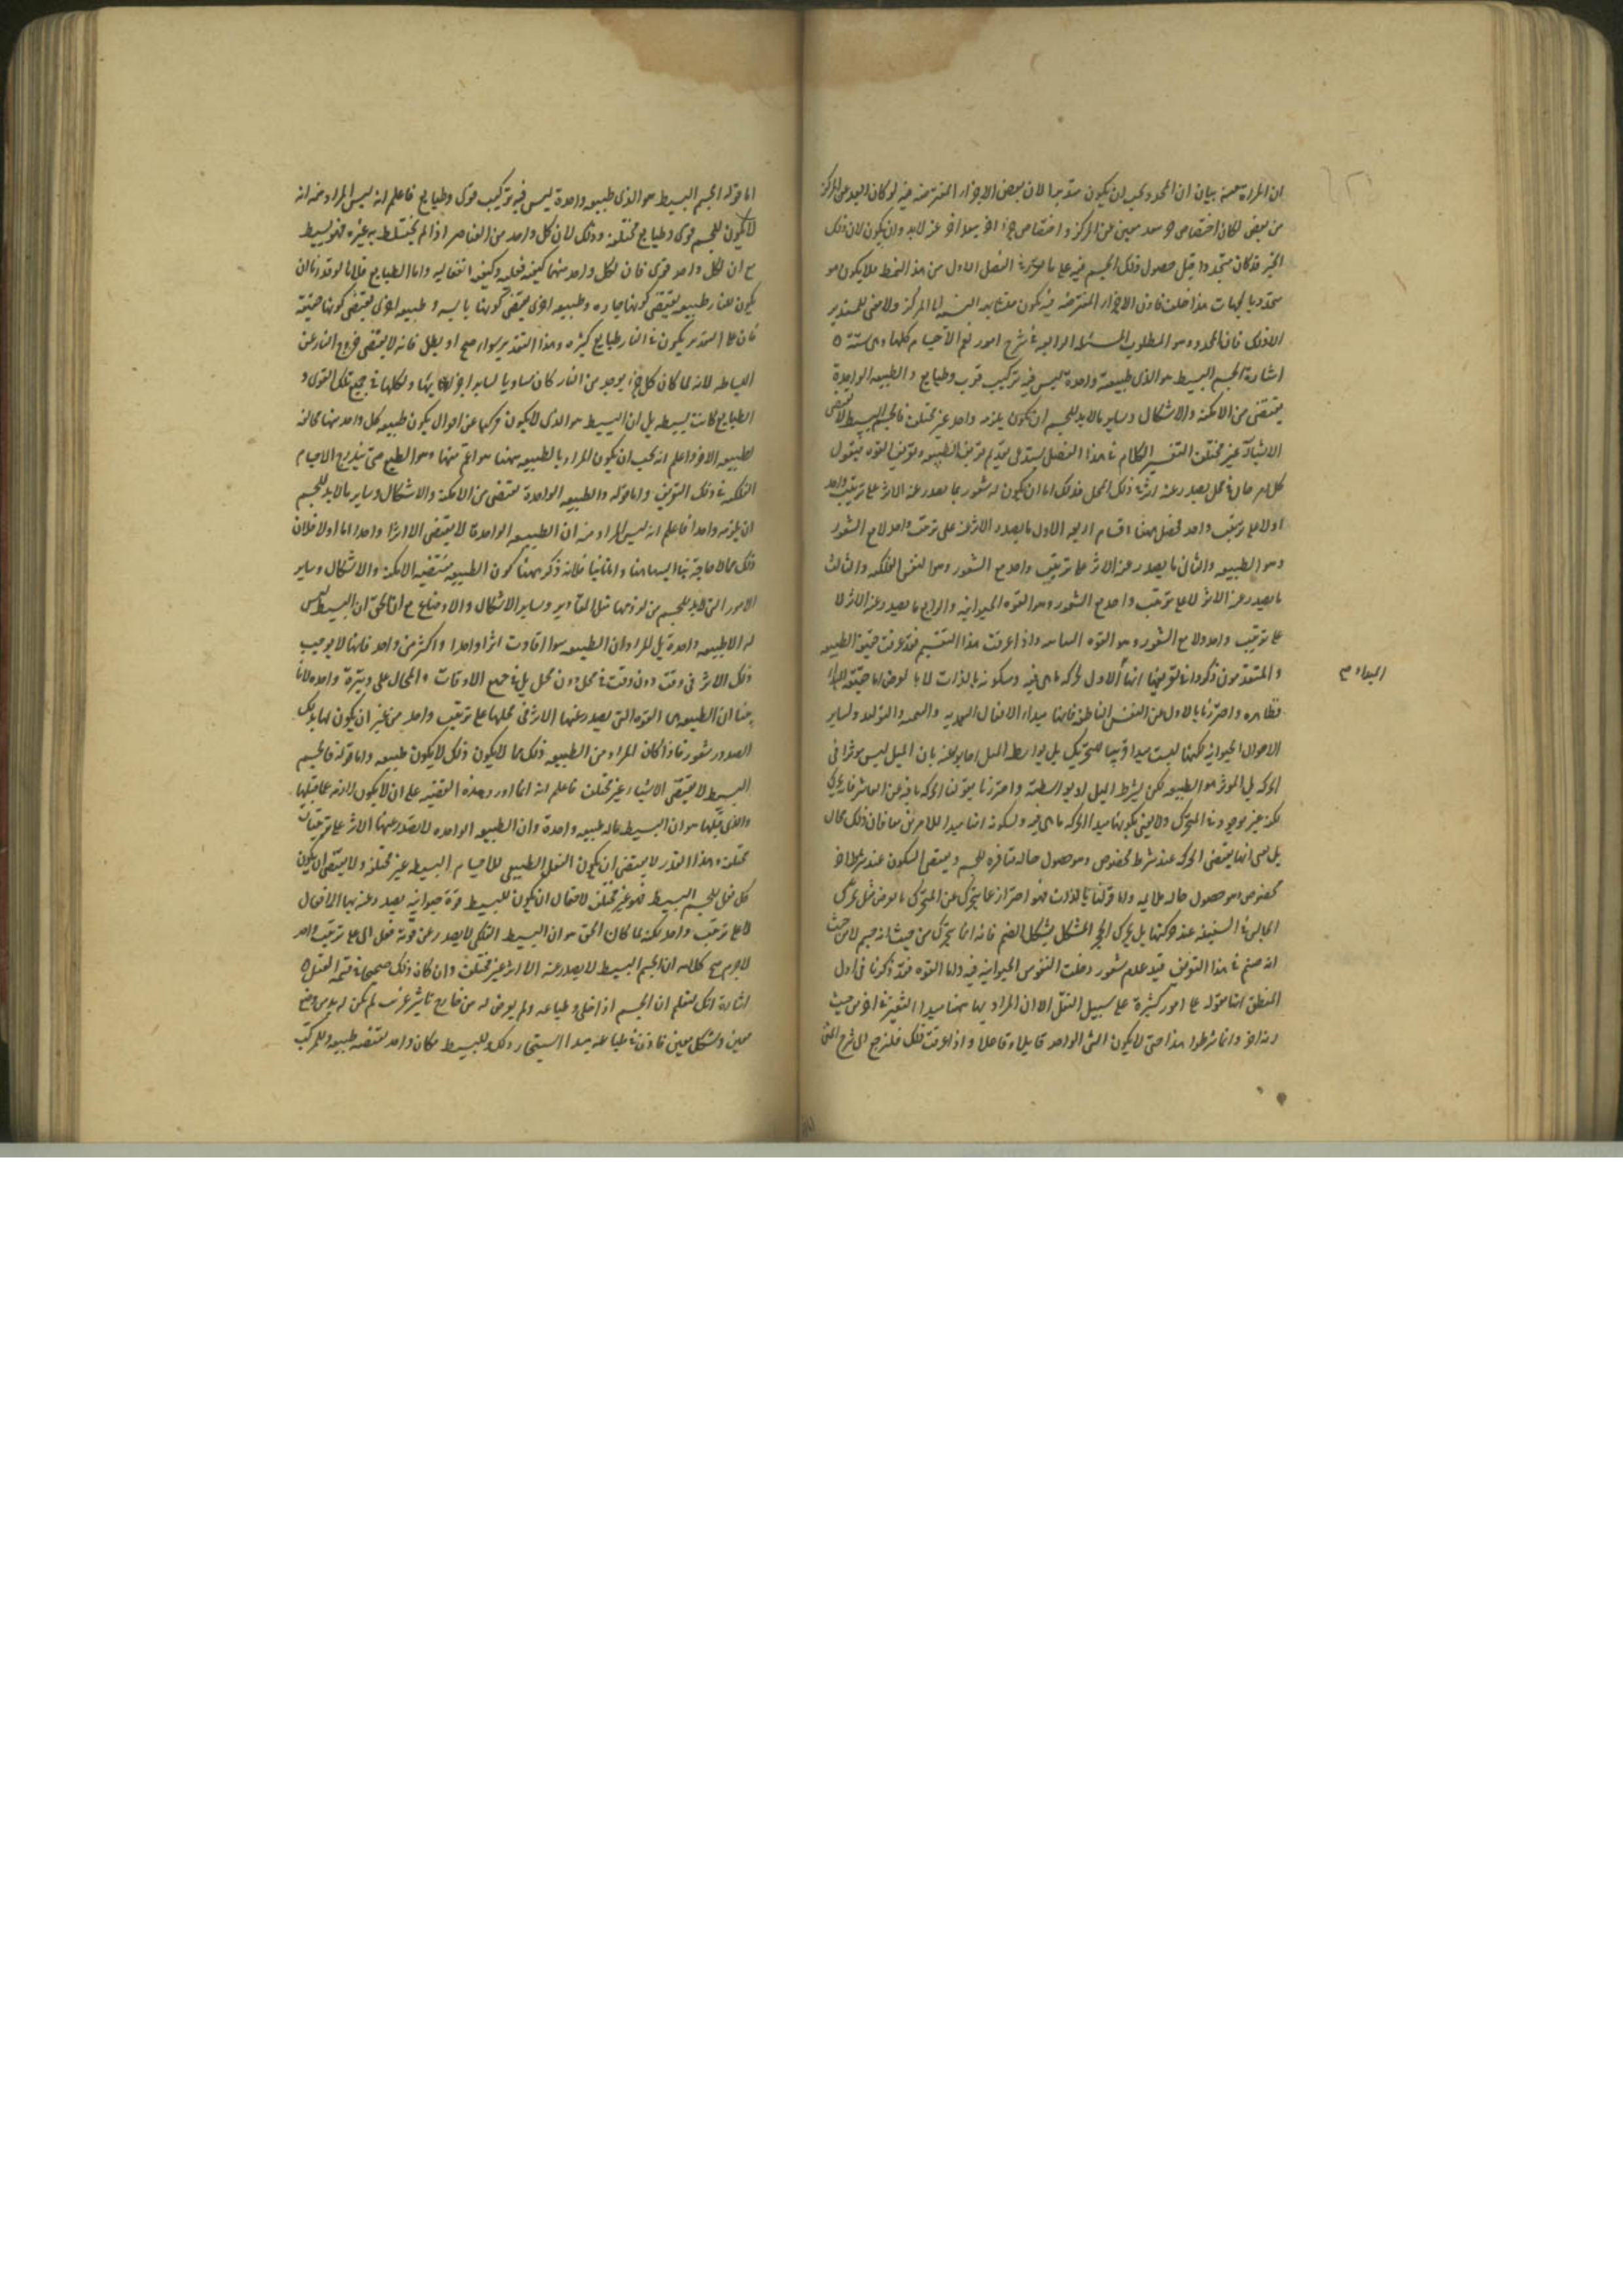 ان المراد منه بيان ان المحدد يجب ان يكون متشابها لان بعض الاجزاء المفترضة فيه لو كان ابعد عن المركز
من بعض لكان اختصاص جزء ببعد معين عن المركز واختصاص جزء اخر ببعد اخر لا بد وان يكون لان ذلك
الحيز قد كان متحددا قبل حصول ذلك الجسم فيه على ما مر في الفصل الاول من هذا النمط فلا يكون هو
محددا للجهات هذا خلف فاذن الاجزاء المفترضة فيه تكون متشابهة النسبة الى المركز ولا معنى للمستدير
الا ذلك فاذن المحدد هو المطلوب المسئلة الرابعة في شرح امور تعم الاجسام كلها وهي ستة
اشارة الجسم البسيط هو الذي طبيعته واحدة ليس فيه تركيب قوى وطبايع والطبيعة الواحدة
تقتضي من الامكنة والاشكال وساير ما لا بد للجسم ان يكون يلزمه واحدا غير مختلف فالجسم البسيط لا يقتضي
الا شيئا غير مختلف التفسير الكلام في هذا الفصل يستدعي تقديم تعريف الطبيعة وتعريف القوة فنقول
كل امر حال في محل يصدر عنه اثر في ذلك المحل فذلك اما ان يكون له شعور بما يصدر عنه الاثر على ترتيب واحد
او لا على ترتيب واحد فحصل ههنا اقسام اربعة الاول ما يصدر الاثر عنه على ترتيب واحد لا مع الشعور
وهو الطبيعة والثاني ما يصدر عنه الاثر على ترتيب واحد مع الشعور وهو النفس الفلكية والثالث
ما يصدر عنه الاثر لا على ترتيب واحد مع الشعور وهو القوة الحيوانية والرابع ما يصدر عنه الاثر لا
على ترتيب واحد ولا مع الشعور وهو القوة النباتية واذا عرفت هذا التقسيم فقد عرفت حقيقة الطبيعة
والمتقدمون ذكروا في تعريفها انها مبدأ الاول لحركة ما هي فيه وسكونه بالذات لا بالعرض اما حقيقة المبدا
المبداء
فظاهرة واحترزنا بالاول عن النفس الناطقة فانها مبداء لافعال التغذية والتنمية والتوليد وساير
الاحوال الحيوانية لكنها ليست مبدا قريبا للتحريك بل بواسطة الميل
الحركة بل المؤثر هو الطبيعة لكن بشرط الميل لا بواسطته واحترزنا بقولنا لحركة ما هي فيه عن
غير موجود في المتحرك ولا نعني بكونها مبدا لحركة ما هي فيه ولسكونه انها مبدا للامرين معا فان ذلك محال
بل نعني انها يقتضي الحركة عند شرط مخصوص وهو حصول حالة منافرة للجسم ويقتضي السكون عند شرط اخر
مخصوص وهو حصول حالة ملايمة واما قولنا بالذات فهو احتراز عما يتحرك عن المتحرك بالعرض مثل تحرك
الجالس في السفينة عند حركتها بل تحرك الحجر المشكل بشكل الصنم فانه انما يتحرك من حيث انه جسم لا من حيث
انه صنم في هذا التعريف قيد عدم شعور دخلت النفوس الحيوانية فيه واما القوة فقد ذكرنا في اول
المنطق انها مقولة على امور كثيرة على سبيل النقل الا ان المراد بها ههنا مبدا التغير في اخر من حيث
انه اخر وانما شرطوا هذا حتى لا يكون الشي الواحد قابلا وفاعلا واذا عرفت ذلك فلنرجع الى شرح المتن
اما قوله الجسم البسيط هو الذي طبيعته واحدة ليس فيه تركيب قوى وطبايع فاعلم انه ليس المراد منه انه
لا يكون للجسم قوى وطبايع مختلفة وذلك لان كل واحد من العناصر اذا لم يختلط به غيره فهو بسيط
مع ان لكل واحد قوى فان لكل واحد منها كيفية فعلية وكيفية انفعالية واما الطبايع فلانا لو قدرنا ان
يكون للنار طبيعة تقتضي كونها حارة وطبيعة اخرى تقتضي كونها يابسة وطبيعة اخرى تقتضي كونها خفيفة
فان على التقدير يكون في النار طبايع كثيرة وهذا التقدير سواء صح او بطل فانه لا يقتضي خروج النار عن
البساطة لانه لما كان كل جزء يوجد من النار كان مساويا لساير اجزائها ولكلها في جميع تلك القوى و
الطبايع كانت بسيطة بل ان البسيط هو الذي لا يكون تركبها عن اجزاء يكون طبيعة كل واحد منها مخالفة
لطبيعة الاخر واعلم انه يجب ان يكون المراد بالطبيعة ههنا هو اعم منها وهو الطبع حتى يندرج الاجسام
الفلكية في ذلك التعريف واما قوله والطبيعة الواحدة تقتضي من الامكنة والاشكال وساير ما لا بد للجسم
ان يلزمه واحدا فاعلم انه ليس المراد منه ان الطبيعة الواحدة لا يقتضي الا اثرا واحدا اما اولا فلان
ذلك مما لا حاجة بنا اليه ههنا واما ثانيا فلانه ذكر ههنا كون الطبيعة مقتضية للامكنة والاشكال وساير
الامور التي لا بد للجسم من لزومها مثل المقادير وساير الاشكال والاوضاع مع ان الحق ان البسيط ليس
له الا طبيعة واحدة بل المراد ان الطبيعة سواء افادت اثرا واحدا او اكثر من واحد فانها لا يوجب
ذلك الاثر في وقت دون وقت وفي محل دون محل بل في جميع الاوقات والمحال على وتيرة واحدة لانا
بينا ان الطبيعة هي القوة التي يصدر عنها الاثر في محلها على ترتيب واحد من غير ان يكون لها بذلك
الصدور شعور فاذا كان المراد من الطبيعة ذلك فما لا يكون كذلك لا يكون طبيعة واما قوله فالجسم
البسيط لا يقتضي الا شيئا غير مختلف فاعلم انه انما اورد هذه القضية على ان لا يكون لازمة عما قبلها
والذي قبلها هو ان البسيط ما له طبيعة واحدة وان الطبيعة الواحدة لا يصدر عنها الاثر على ترتيبات
مختلفة وهذا القدر لا يقتضي ان يكون الفعل الطبيعي للاجسام البسيطة غير مختلفة ولا يقتضي ان يكون
كل فعل للجسم البسيط فهو غير مختلف لاحتمال ان يكون للبسيط قوة حيوانية يصدر عنه بها الافعال
لا على ترتيب واحد لكنه لما كان الحق هو ان البسيط الفلكي لا يصدر عن قوته فعل الا على ترتيب واحد
لا جرم صح كلامه ان الجسم البسيط لا يصدر عنه الا اثر غير مختلف وان كان ذلك صحيحا في قسمة العقل
اشارة انك لتعلم ان الجسم اذا خلي وطباعه ولم يعرض له من خارج تاثير غريب لم يكن له بد من وضع
معين وشكل معين فاذن في طباعه مبدا استيجاب ذلك وللبسيط مكان واحد يقتضيه طبيعة وللمركب